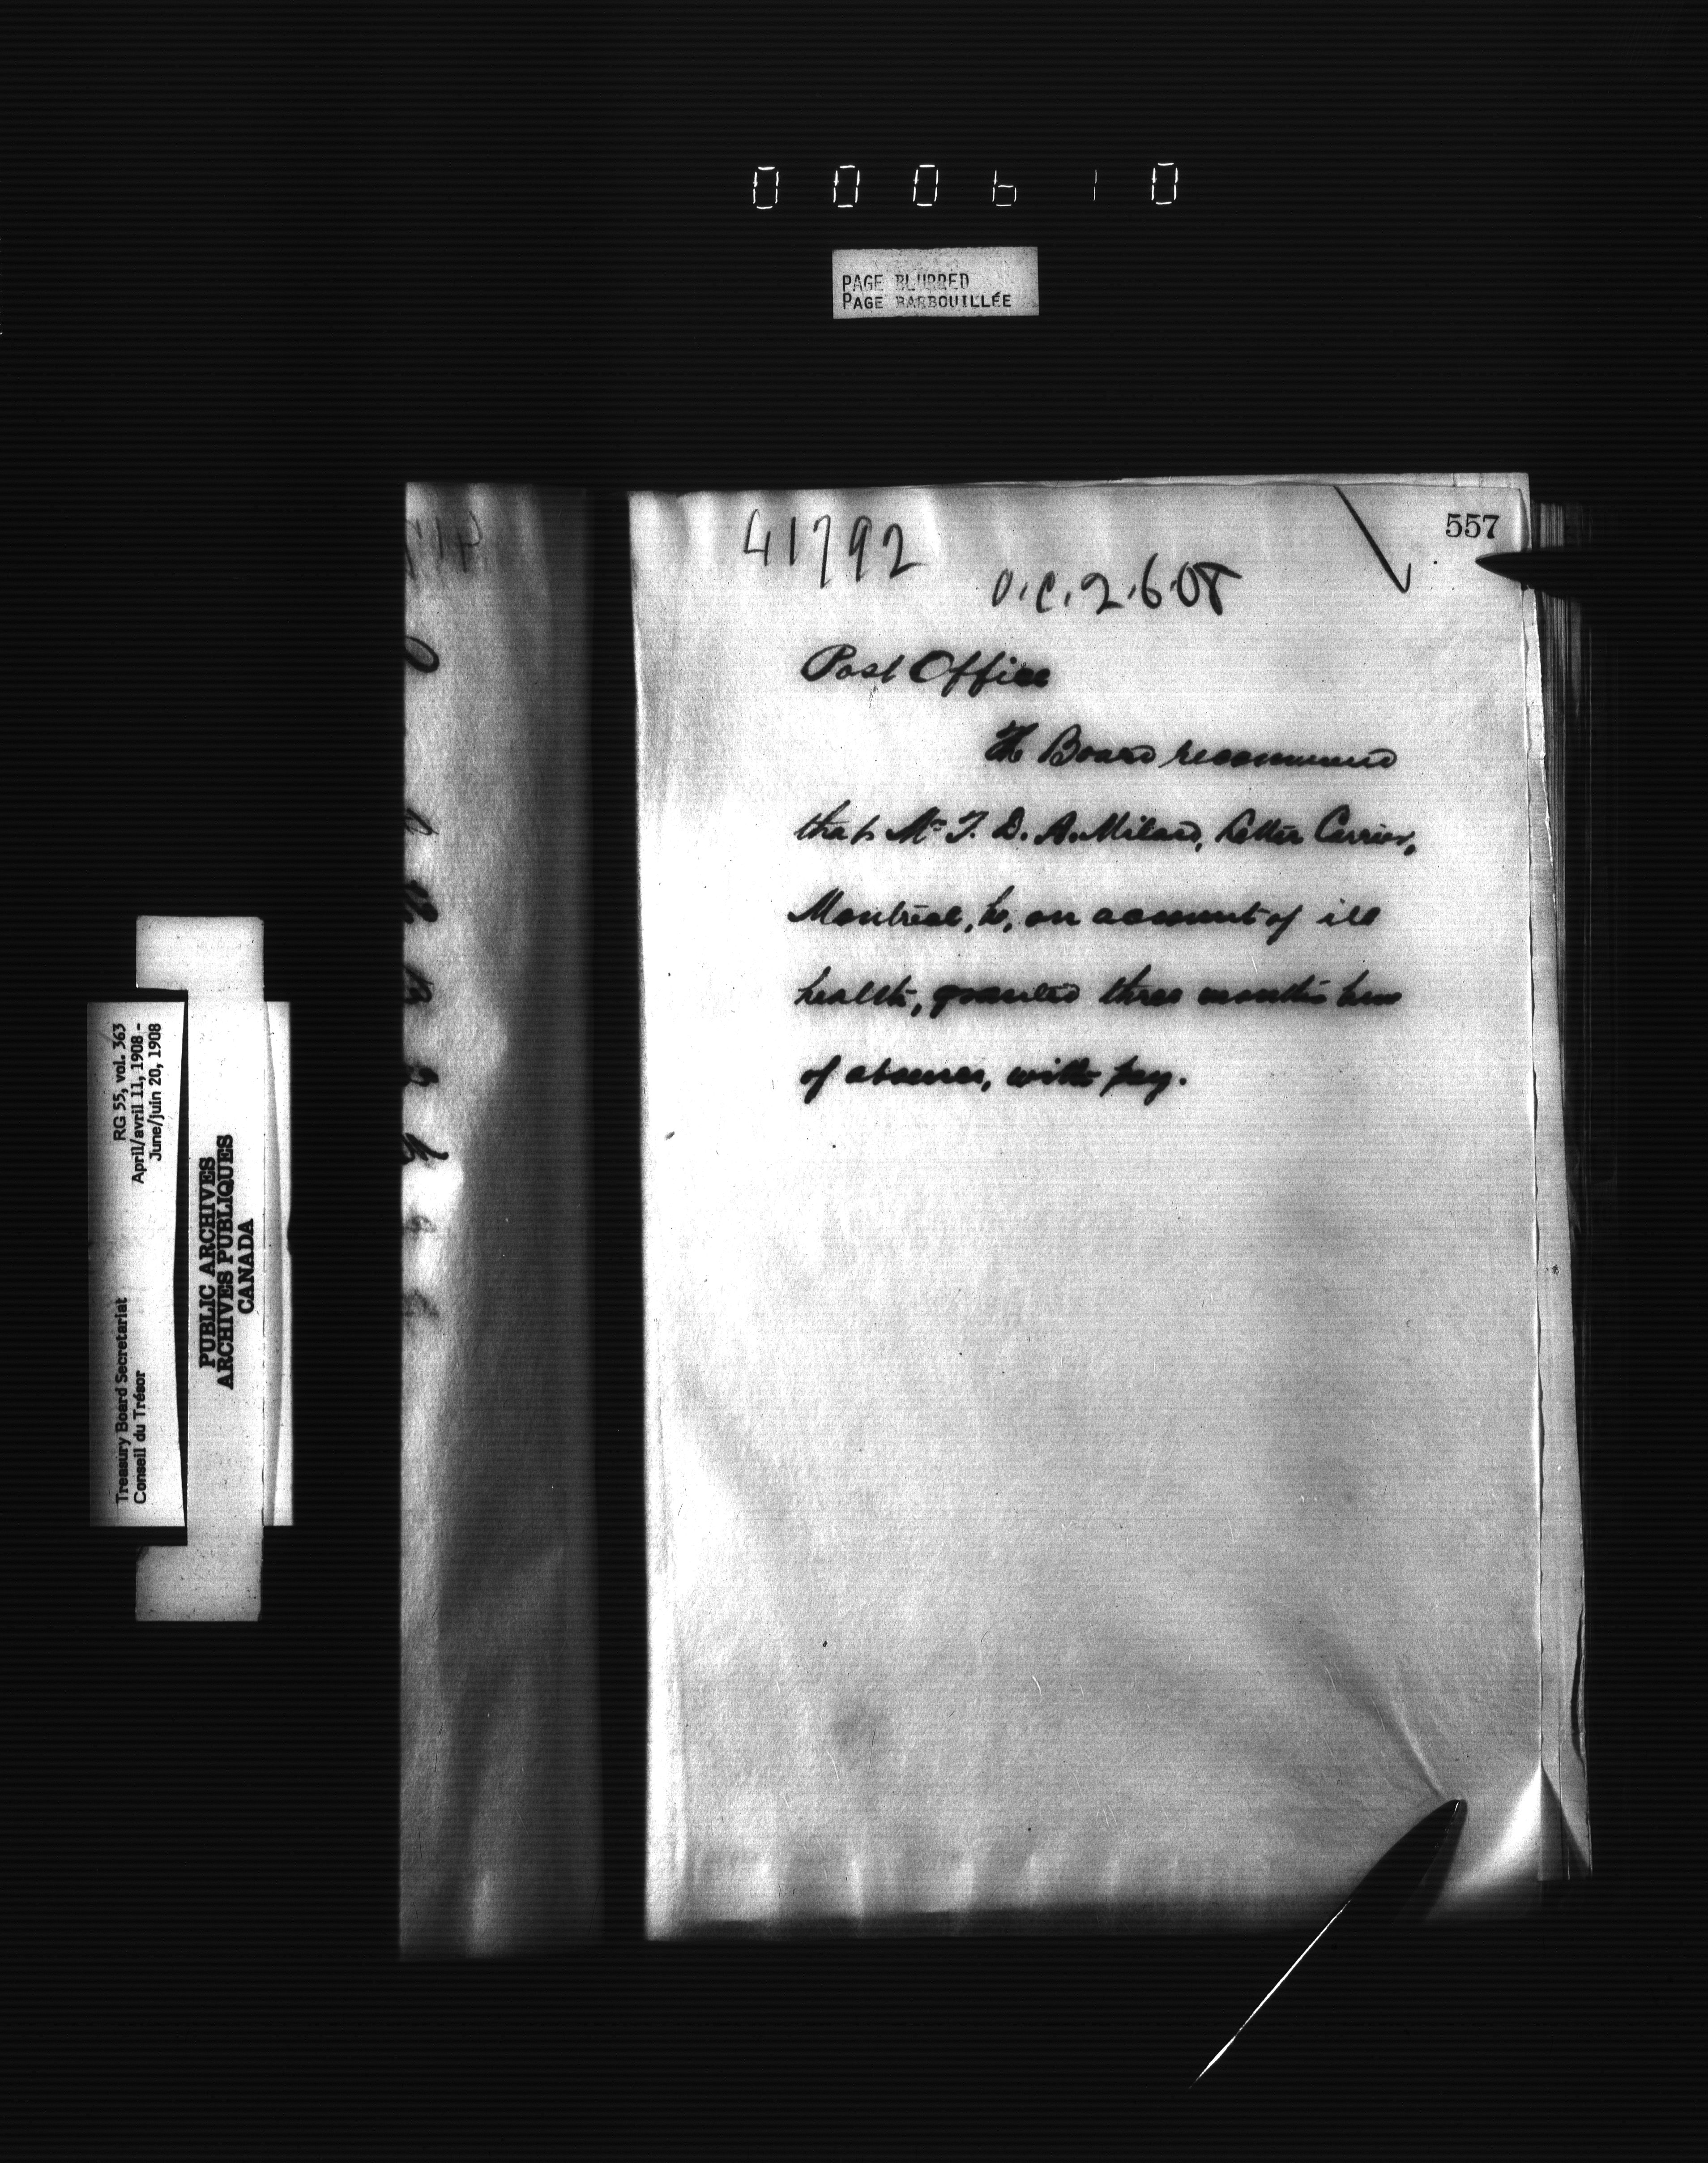 000610
PAGE BLURRED
PAGE BARBOUILLÉE
557
41792
O.C. 2.6.08
Post Office
The Board recommend
that Mr. F. D. A. Milard, Letter Carrier,
Montreal, be, on account of ill
health, granted three months leave
of absence, with pay.
RG 55, vol. 363
April/avril 11, 1908 -
June/juin 20, 1908
Treasury Board Secretariat
Conseil du Trésor
PUBLIC ARCHIVES
ARCHIVES PUBLIQUES
CANADA